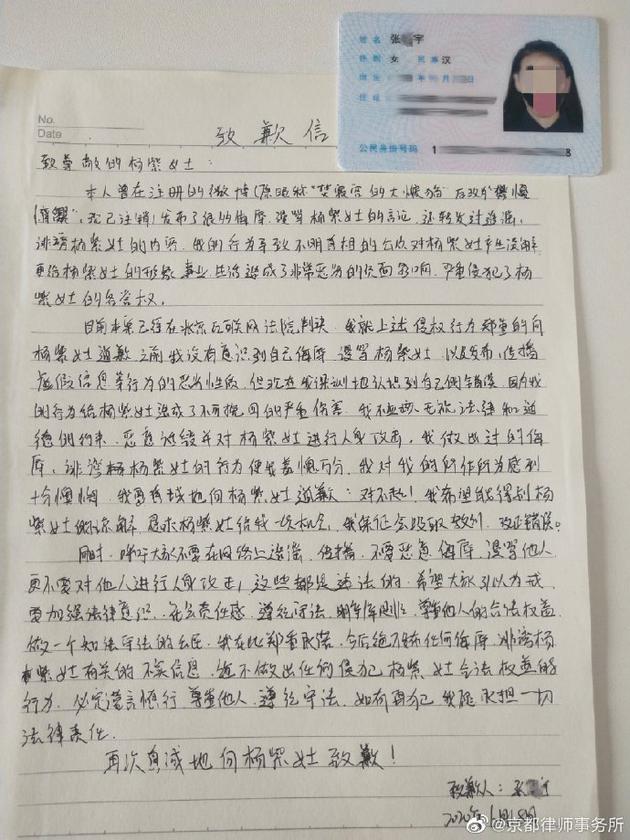 姓名 张 宇
性别 女 民族 汉
出生 年 月 日
住址
公民身份号码 1 8
No.
Date
致歉信
致尊敬的杨紫女士：
本人曾在注册的微博（原昵称“焚寂宫的大懒猫”后改为
我已注销）发布了很多侮辱、谩骂杨紫女士的言论，还转发过造谣、
诽谤杨紫女士的内容，我的行为导致不明真相的公众对杨紫女士产生误解，
更给杨紫女士的形象、事业、生活造成了非常恶劣的负面影响，严重侵犯了杨
紫女士的名誉权。
目前本案已经在北京互联网法院判决，我就上述侵权行为郑重的向
杨紫女士道歉，之前我没有意识到自己侮辱、谩骂杨紫女士以及发布、传播
虚假信息等行为的恶劣性质，但现在我深刻地认识到自己的错误，因为我
的行为给杨紫女士造成了不可挽回的严重伤害，我不应该无视法律和道
德的约束，恶意诽谤并对杨紫女士进行人身攻击，我做出过的侮
辱、诽谤杨紫女士的行为使我羞愧万分，我对我的所作所为感到
十分懊悔，我要真诚地向杨紫女士道歉：对不起！我希望能得到杨
紫女士的谅解，恳求杨紫女士给我一次机会，我保证会吸取教训，改正错误。
同时，呼吁大家不要在网络上造谣、传播，不要恶意侮辱、谩骂他人，
更不要对他人进行人身攻击，这些都是违法的，希望大家引以为戒，
要加强法律意识、社会责任感，遵纪守法，明辨是非，尊重他人的合法权益，
做一个知法守法的公民，我在此郑重承诺，今后绝不转任何侮辱、诽谤杨
紫女士有关的不实信息，绝不做出任何侵犯杨紫女士合法权益的
行为，必定谨言慎行，尊重他人，遵纪守法，如有再犯，我愿承担一切
法律责任。
再次真诚地向杨紫女士致歉！
致歉人：张 宇
2020年6月18日
@京都律师事务所